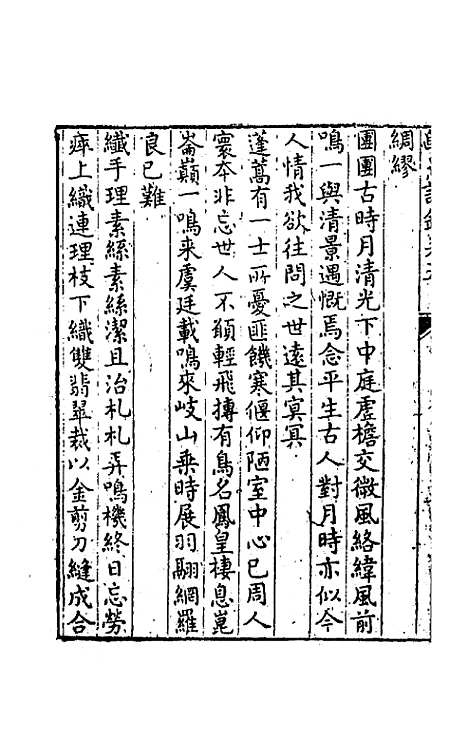 綢繆
團團古時月清光下中庭虛檐交微風絡緯風前
鳴一與清景遇慨焉念平生古人對月時亦似今
人情我欲往問之世遠其寞冥
蓬蒿有一士所憂匪饑寒偃仰陋室中心已周人
寰本非忘世人不願輕飛摶有鳥名鳳皇棲息崑
崙巔一鳴来虞廷載鳴來岐山乗時展羽翮網羅
良已難
纖手理素絲素絲潔且治札札弄鳴機終日忘勞
瘁上織連理枝下織雙翡翠裁以金剪刀縫成合